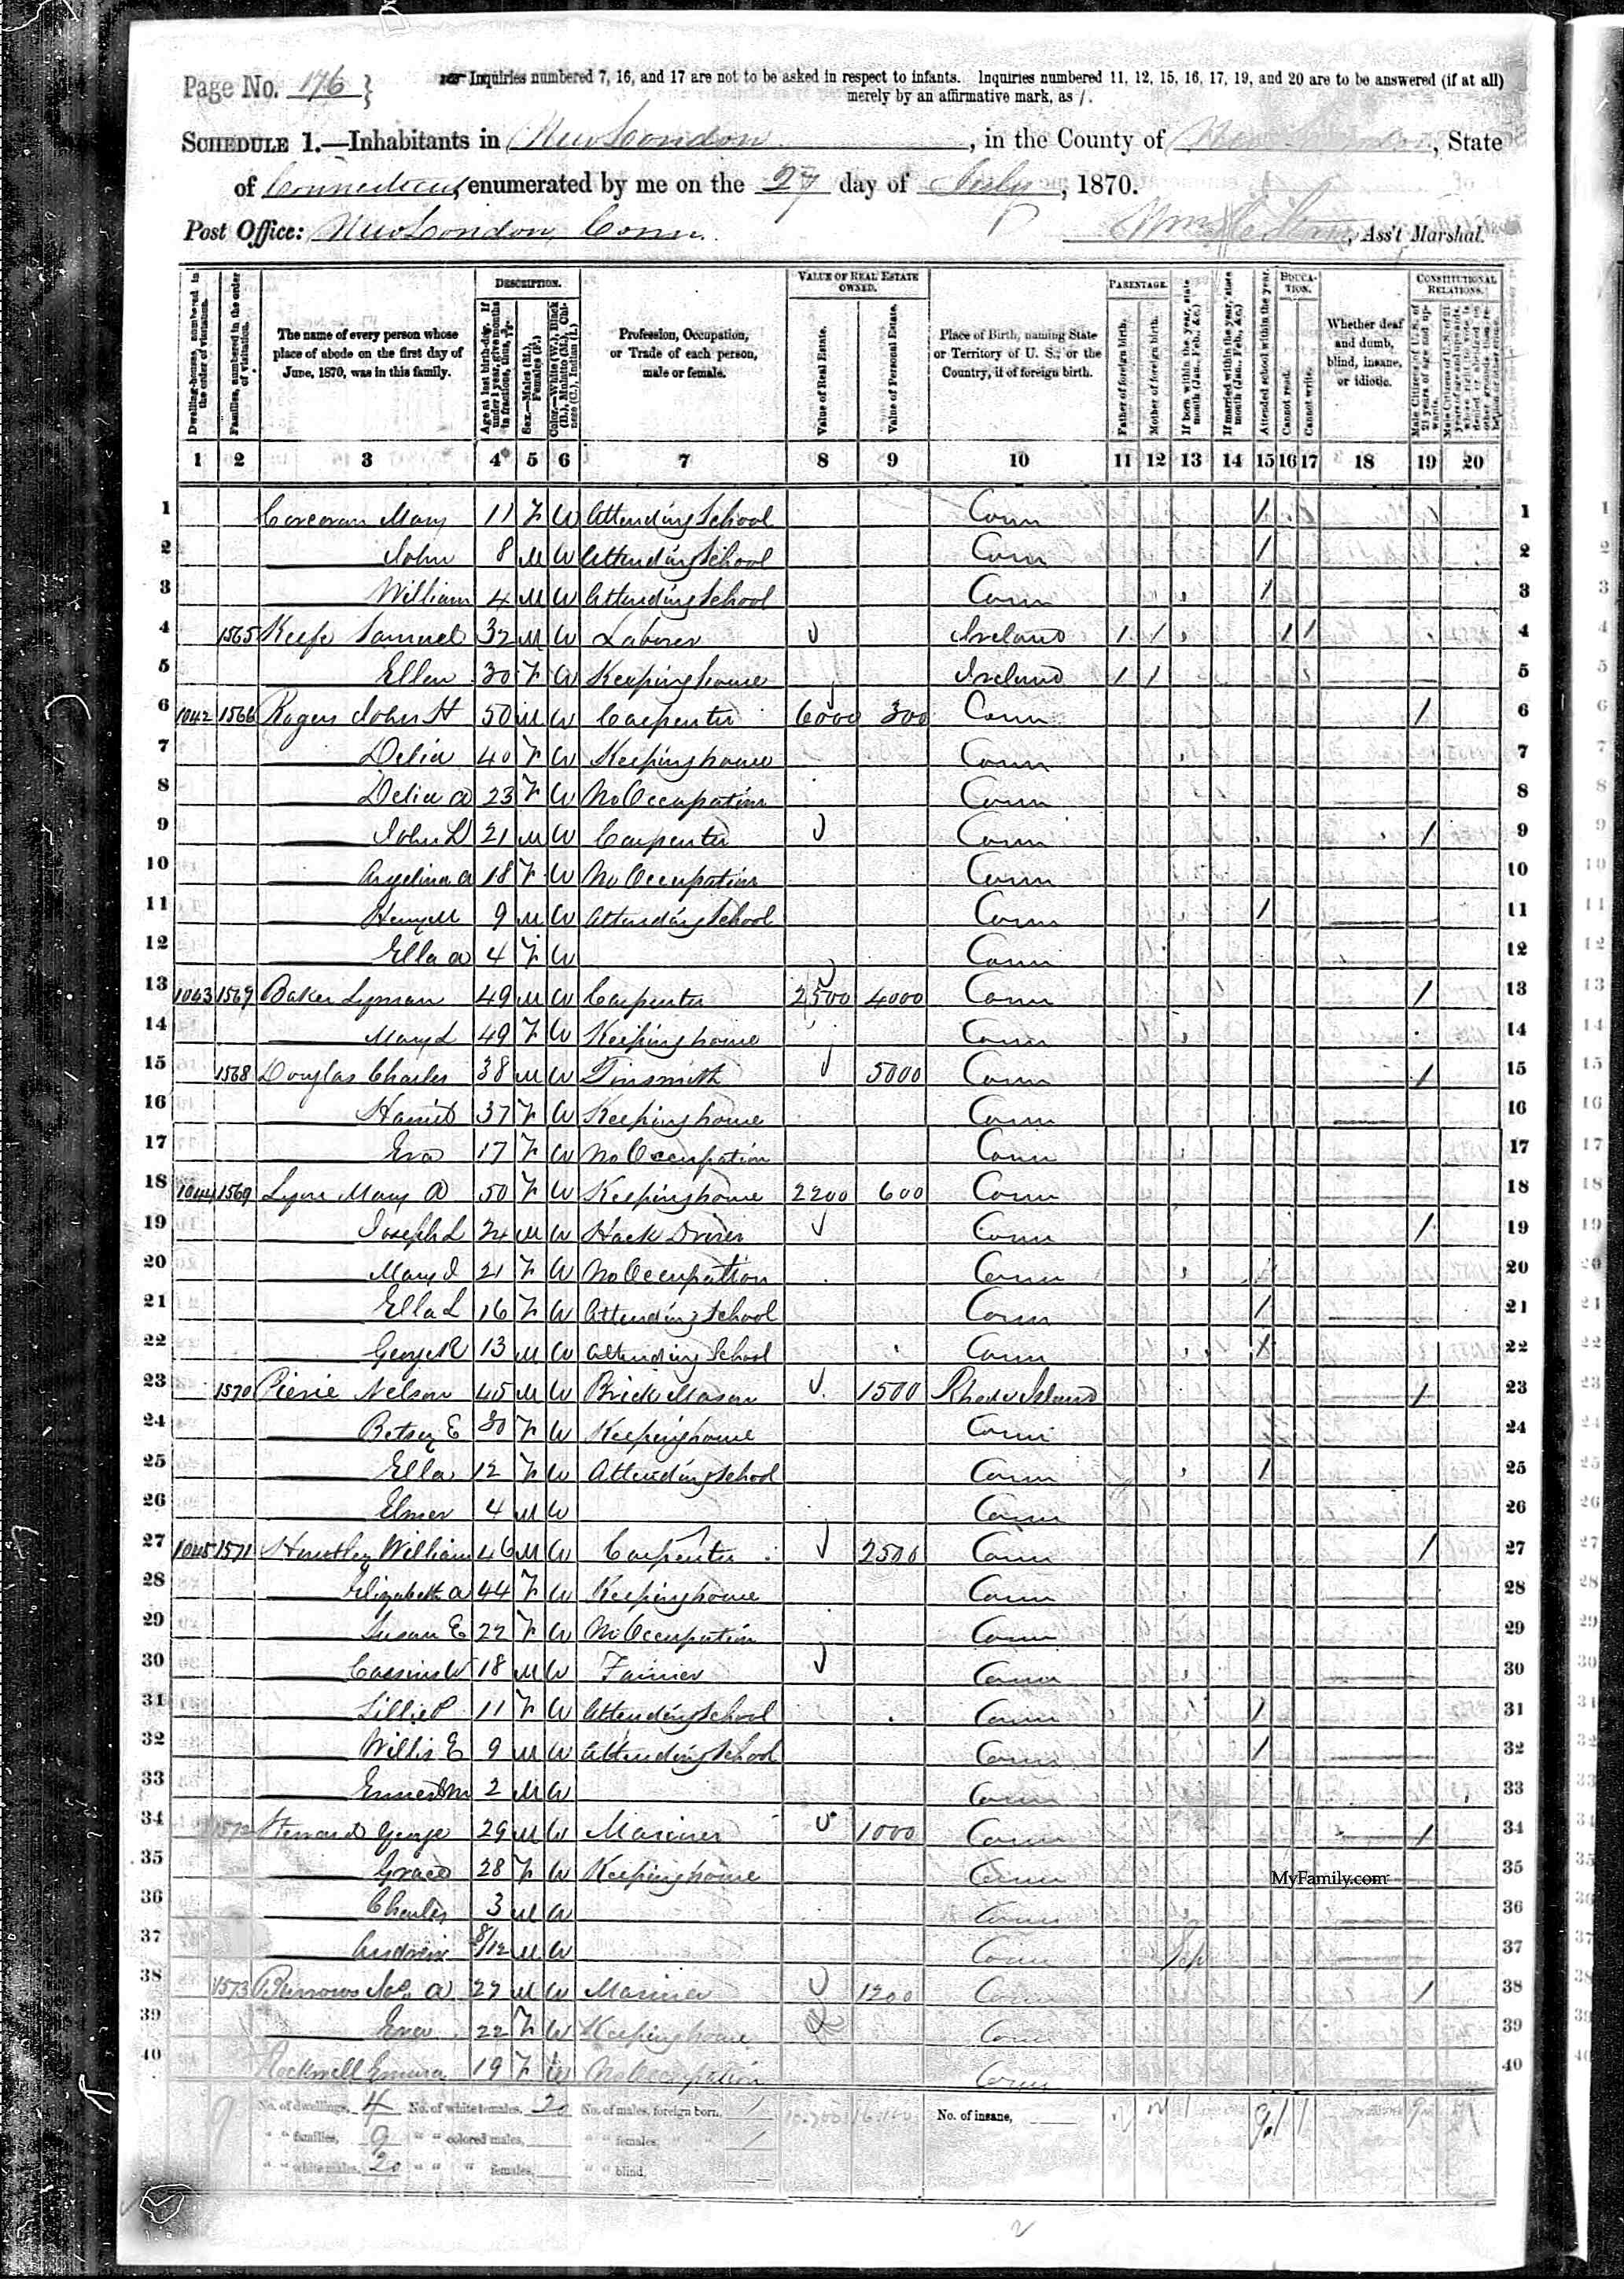 Page No. 176 }
Inquiries numbered 7, 16, and 17 are not to be asked in respect to infants. Inquiries numbered 11, 12, 15, 16, 17, 19, and 20 are to be answered (if at all)
merely by an affirmative mark, as /.
SCHEDULE 1.—Inhabitants in New London, in the County of New London, State
of Connecticut, enumerated by me on the 27 day of July, 1870.
Post Office: New London Conn. Ass't Marshal.
DESCRIPTION. VALUE OF REAL ESTATE OWNED. PARENTAGE. EDUCATION. CONSTITUTIONAL RELATIONS.
Dwelling-houses, numbered in the order of visitation.
Families, numbered in the order of visitation.
The name of every person whose place of abode on the first day of June, 1870, was in this family.
Age at last birth-day. If under 1 year, give months in fractions, thus, 3/12.
Sex.—Males (M.), Females (F.)
Color.—White (W.), Black (B.), Mulatto (M.), Chinese (C.), Indian (I.)
Profession, Occupation, or Trade of each person, male or female.
Value of Real Estate.
Value of Personal Estate.
Place of Birth, naming State or Territory of U. S.; or the Country, if of foreign birth.
Father of foreign birth.
Mother of foreign birth.
If born within the year, state month (Jan., Feb., &c.)
If married within the year, state month (Jan., Feb., &c.)
Attended school within the year.
Cannot read.
Cannot write.
Whether deaf and dumb, blind, insane, or idiotic.
Male Citizens of U.S. of 21 years of age and upwards.
1 2 3 4 5 6 7 8 9 10 11 12 13 14 15 16 17 18 19 20
1 Corcoran Mary 11 F W Attending School Conn / 1
2 John 8 M W Attending School Conn / 2
3 William 4 M W Attending School Conn / 3
4 1565 Keefe Samuel 32 M W Laborer Ireland / / / / 4
5 Ellen 30 F W Keeping house Ireland / / 5
6 1042 1566 Rogers John H 50 M W Carpenter 6000 300 Conn / 6
7 Delia 40 F W Keeping house Conn 7
8 Delia A 23 F W No Occupation Conn 8
9 John D 21 M W Carpenter Conn / 9
10 Angelina A 18 F W No Occupation Conn 10
11 Henry M 9 M W Attending School Conn / 11
12 Ella A 4 F W Conn 12
13 1043 1567 Baker Lyman 49 M W Carpenter 2500 4000 Conn / 13
14 Mary L 49 F W Keeping house Conn 14
15 1568 Douglas Charles 38 M W Tinsmith 5000 Conn / 15
16 Harriet 37 F W Keeping house Conn 16
17 Eva 17 F W No Occupation Conn 17
18 1044 1569 Lyon Mary A 50 F W Keeping house 2200 600 Conn 18
19 Joseph L 24 M W Hack Driver Conn / 19
20 Mary J 21 F W No Occupation Conn 20
21 Ella L 16 F W Attending School Conn / 21
22 George R 13 M W Attending School Conn / 22
23 1570 Nelson 45 M W Brick Mason 1500 Rhode Island / 23
24 Betsey E 30 F W Keeping house Conn 24
25 Ella 12 F W Attending School Conn / 25
26 Elmer 4 M W Conn 26
27 1045 1571 Huntley William 46 M W Carpenter 2500 Conn / 27
28 Elizabeth A 44 F W Keeping house Conn 28
29 Susan E 22 F W No Occupation Conn 29
30 Cassius W 18 M W Farmer Conn 30
31 Lillie P 11 F W Attending School Conn / 31
32 Willis E 9 M W Attending School Conn / 32
33 Ernest M 2 M W Conn 33
34 1572 George 29 M W Mariner 1000 Conn / 34
35 Grace 28 F W Keeping house Conn 35
MyFamily.com
36 Charles 3 M W Conn 36
37 8/12 M W Conn Sep 37
38 1573 Burrows A 27 M W Mariner 1200 Conn / 38
39 22 F W Keeping house Conn 39
40 Rockwell Emma 19 F W No Occupation Conn 40
No. of dwellings, 4 No. of white females, 20 No. of males, foreign born, 1 10.700 16.100 No. of insane,
" " families, 9 " " colored males, " " females, " " 1
" " white males, 20 " " " females, " " blind,